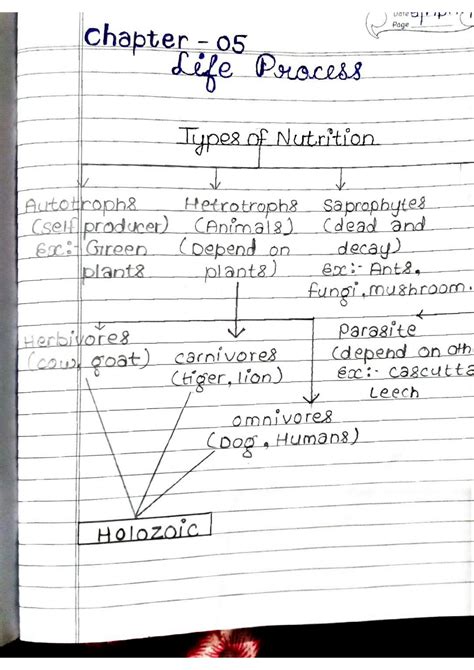 Page
Chapter - 05
Life Process
Types of Nutrition
Autotrophs
(self producer)
ex:- Green
plants
Hetrotrophs
(Animals)
(Depend on
plants)
Saprophytes
(dead and
decay)
ex:- Ants,
fungi, mushroom.
Herbivores
(cow, goat)
carnivores
(tiger, lion)
Parasite
(depend on oth
ex:- cascutta
Leech
omnivores
(Dog, Humans)
Holozoic